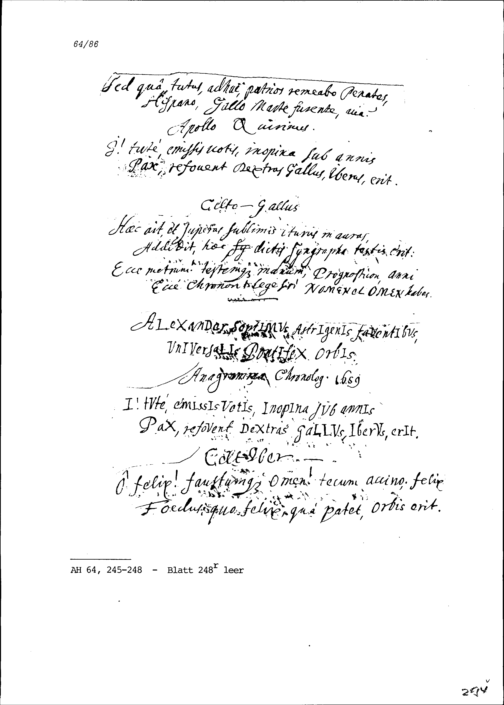 64/86
Sed quâ, tutus, adhuc, patrios remeabo Penates,
Hispano, Gallo Marte furente, via?
Apollo Quirinus.
I! tutè, emissis uotis, inopina sub annis
Pax, refouent Dextras Gallus, Iberus, erit.
Celto-Gallus
Haec ait, et Jupiter sublimis iturus
Addidit, haec dictis syngrapha testis erit:
Ecce metrum! testemq; manum, Prognostion anni
Ecce Chronon NOMEN OMEN habes.
ALexanDer septIMVs AstrIgenIs faVentIbVs,
VnIVersaLIs PontIfeX OrbIs
Anagramma Chronolog. 1659
I! tVtè, emIssIs VotIs, InopIna sVb annIs
PaX, refoVent DeXtras GaLLVs, IberVs, erIt.
Celt-Iber
O felix! faustumq; Omen! tecum felix
Foedusque, felix, quà patet, Orbis erit.
AH 64, 245-248 - Blatt 248r leer
294v